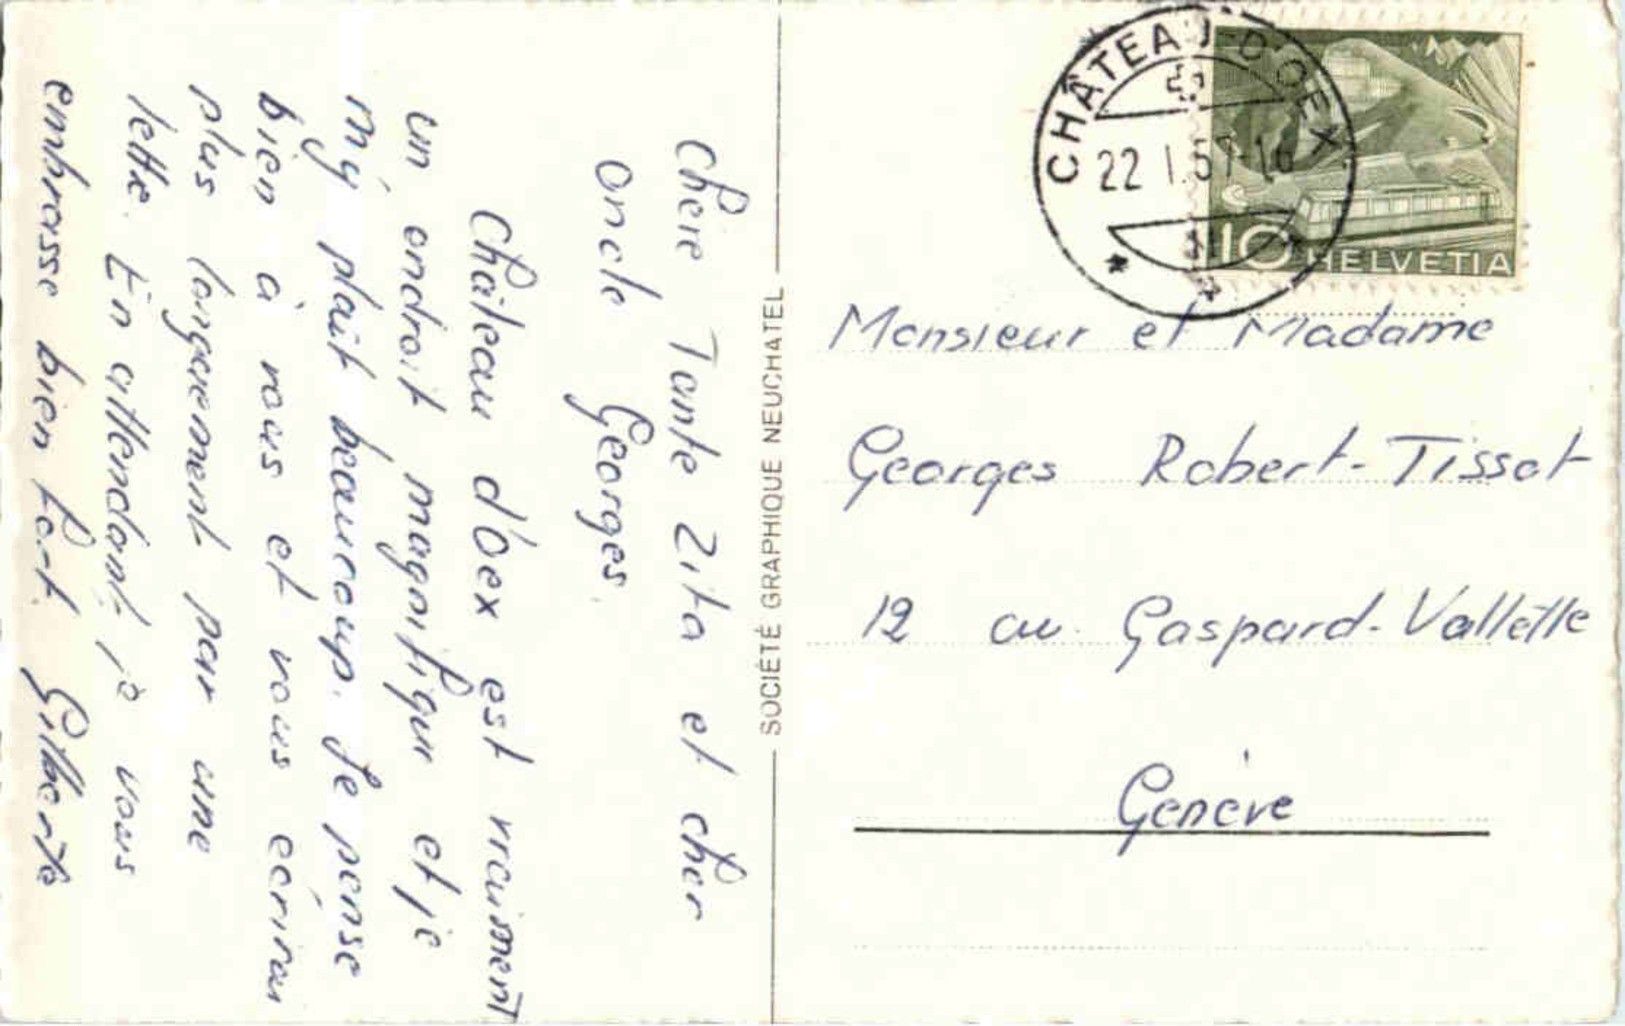 Chère Tante Zita et cher
oncle Georges.
Château d'Oex est vraiment
un endroit magnifique et je
m'y plaît beaucoup. Je pense
bien à vous et vous écrirai
plus longuement par une
lettre. En attendant, je vous
embrasse bien fort. Gilberte
SOCIÉTÉ GRAPHIQUE NEUCHATEL
CHÂTEAU-D'OEX
22 I.57-16
10 HELVETIA
Monsieur et Madame
Georges Robert-Tissot
12 av. Gaspard-Vallette
Genève